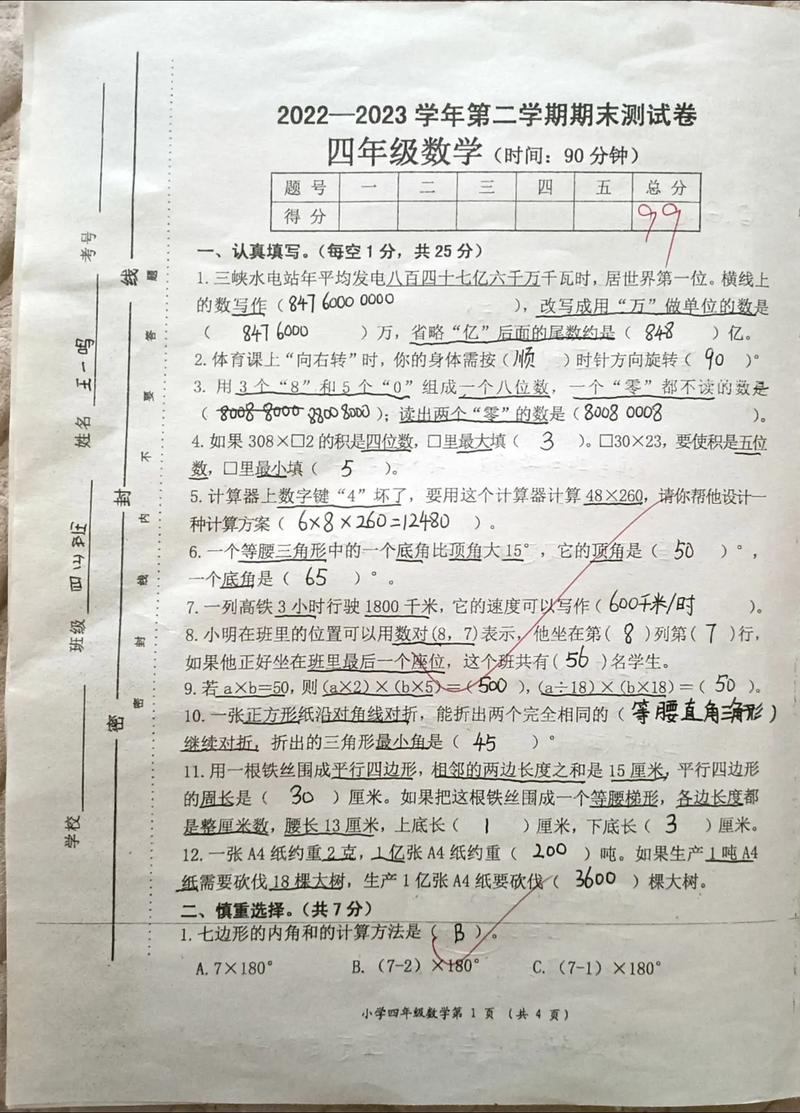 2022—2023 学年第二学期期末测试卷
四年级数学（时间：90 分钟）
题 号 一 二 三 四 五 总 分
得 分 99
一、认真填写。（每空 1 分，共 25 分）
1. 三峡水电站年平均发电八百四十七亿六千万千瓦时，居世界第一位。横线上
的数写作（847 6000 0000），改写成用“万”做单位的数是
（ 847 6000 ）万，省略“亿”后面的尾数约是（ 848 ）亿。
2. 体育课上“向右转”时，你的身体需按（顺 ）时针方向旋转（ 90 ）°
3. 用 3 个“8”和 5 个“0”组成一个八位数，一个“零”都不读的数是
（ 8008 8000 8800 8000 ）；读出两个“零”的数是（8008 0008 ）。
4. 如果 308×□2 的积是四位数，□里最大填（ 3 ）。□30×23，要使积是五位
数，□里最小填（ 5 ）。
5. 计算器上数字键“4”坏了，要用这个计算器计算 48×260，请你帮他设计一
种计算方案（ 6×8×260=12480 ）。
6. 一个等腰三角形中的一个底角比顶角大 15°，它的顶角是（ 50 ）°，
一个底角是（ 65 ）°。
7. 一列高铁 3 小时行驶 1800 千米，它的速度可以写作（600千米/时 ）。
8. 小明在班里的位置可以用数对（8，7）表示，他坐在第（ 8 ）列第（ 7 ）行，
如果他正好坐在班里最后一个座位，这个班共有（ 56 ）名学生。
9. 若 a×b=50，则（a×2）×（b×5）＝（ 500 ），（a÷18）×（b×18）＝（ 50 ）。
10. 一张正方形纸沿对角线对折，能折出两个完全相同的（ 等腰直角三角形 ）
继续对折，折出的三角形最小角是（ 45 ）°
11. 用一根铁丝围成平行四边形，相邻的两边长度之和是 15 厘米，平行四边形
的周长是（ 30 ）厘米。如果把这根铁丝围成一个等腰梯形，各边长度都
是整厘米数，腰长 13 厘米，上底长（ 1 ）厘米，下底长（ 3 ）厘米。
12. 一张 A4 纸约重 2 克，1 亿张 A4 纸约重（ 200 ）吨。如果生产 1 吨 A4
纸需要砍伐 18 棵大树，生产 1 亿张 A4 纸要砍伐（ 3600 ）棵大树。
二、慎重选择。（共 7 分）
1. 七边形的内角和的计算方法是（ B ）。
A. 7×180° B.（7-2）×180° C.（7-1）×180°
小学四年级数学第 1 页 （共 4 页）
学校
班级
姓名 王一鸣
考号
密 封 线
密 封 线 内 不 要 答 题